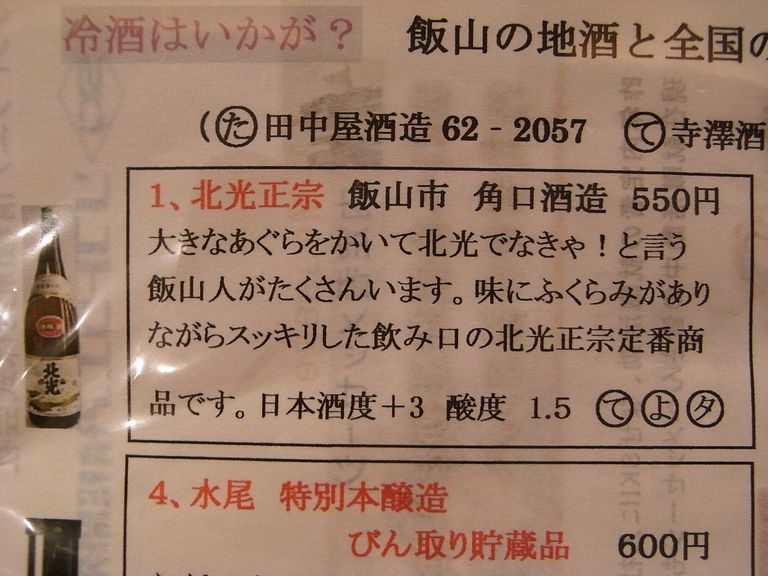 冷酒はいかが？ 飯山の地酒と全国の
(た田中屋酒造62-2057 て寺澤酒
1、北光正宗 飯山市 角口酒造 550円
大きなあぐらをかいて北光でなきゃ！と言う
飯山人がたくさんいます。味にふくらみがあり
ながらスッキリした飲み口の北光正宗定番商
品です。日本酒度＋3 酸度 1.5 てよタ
北光
4、水尾 特別本醸造
びん取り貯蔵品 600円